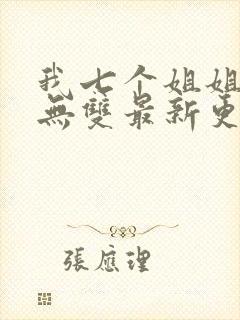 我七个姐姐
無雙最新更
張應理